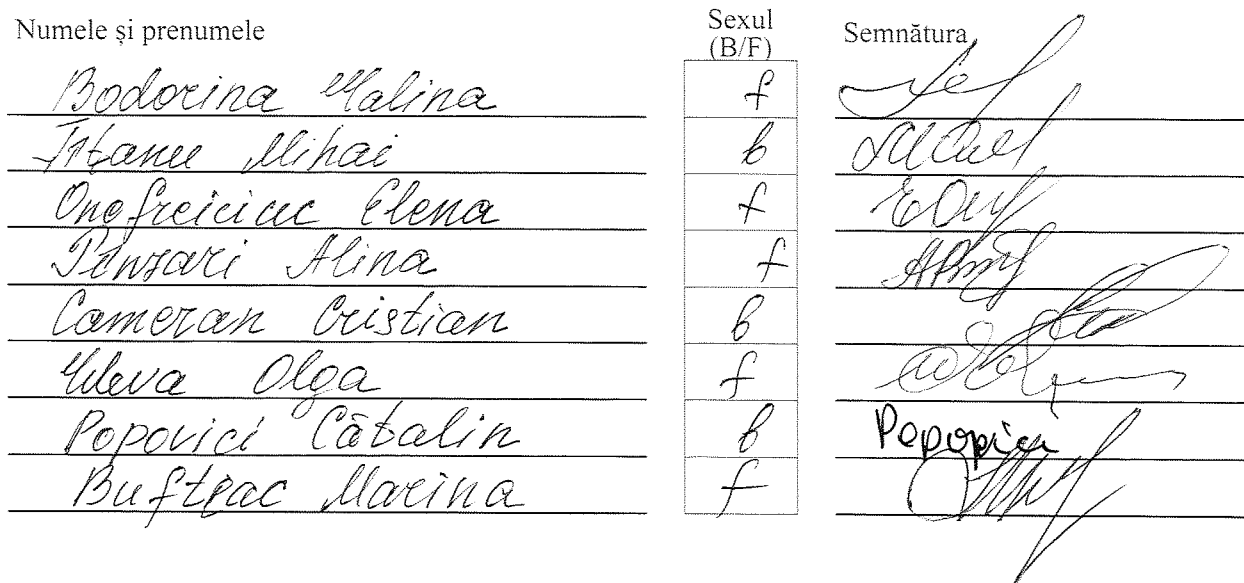 Numele și prenumele Sexul (B/F) Semnătura
Bodorina Malina f
Țîțanu Mihai b
Onofreiciuc Elena f
Pînzari Alina f
Cameran Cristian b
Olga f
Popovici Cătalin b Popovici
Bufteac Marina f